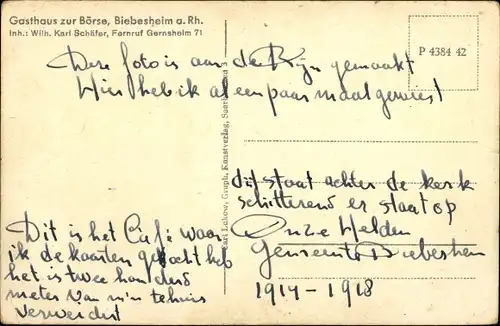 Gasthaus zur Börse, Biebesheim a. Rh.
Inh.: Wilh. Karl Schäfer, Fernruf Gernsheim 71
P 4384 42
Deze foto is aan de Rijn gemaakt
Hier heb ik al een paar maal geweest
dijt staat achter de kerk
schitterend er staat op
Onze Helden
Gemeente Biebesheim
1914 - 1918
Dit is het Café waar
ik de kaarten gekocht heb
het is twee honderd
meter van m'n tehuis
verwerderd
Karl Lukow, Graph. Kunstverlag,